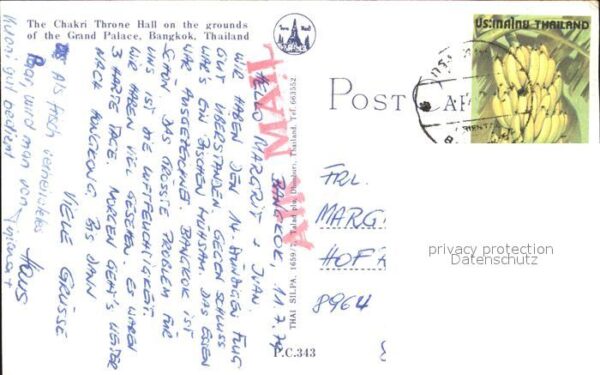 The Chakri Throne Hall on the grounds
of the Grand Palace, Bangkok, Thailand
BANGKOK, 11.7.
HELLO MARGRIT + JUAN.
WIR HABEN DEN 14-STÜNDIGEN FLUG
GUT ÜBERSTANDEN. GEGEN SCHLUSS
WAR'S EIN BISCHEN MÜHSAM. DAS ESSEN
WAR AUSGEZEICHNET. BANGKOK IST
SCHÖN. DAS GROSSE PROBLEM FÜR
UNS IST DIE LUFTFEUCHTIGKEIT.
WIR HABEN VIEL GESEHEN. ES WAREN
3 HARTE TAGE. MORGEN GEHT'S WEITER
NACH HONGKONG. BIS DANN
VIELE GRÜSSE
HANS
Als frisch verheiratetes
Paar, wird man von
gut bedient
AIR MAIL
THAI SILPA, 1659/7 Thailand, Tel. 663552
P.C.343
POST CA
ประเทศไทย THAILAND
FRL.
MARG
HOF
8964
privacy protection
Datenschutz